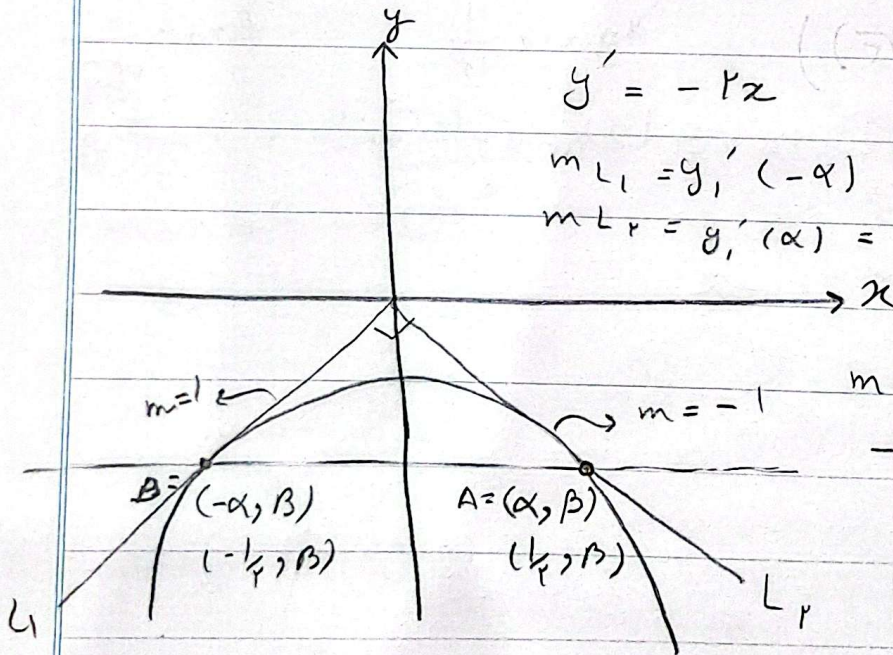 y
y′ = -۲x
m L₁ = y₁′ (-α)
m L۲ = y₁′ (α) =
x
m
m=1
m = -1
B=
(-α, β)
A=(α, β)
(-1/۲, β)
(1/۲, β)
L₁
L۲